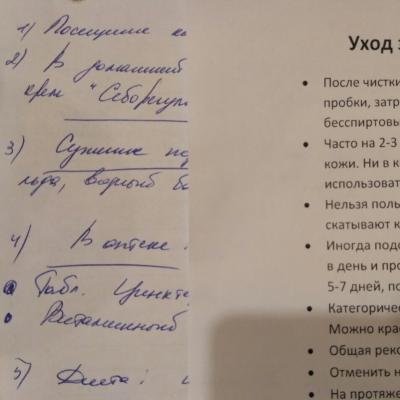 1) Посещение
2) В домашней
крем "Себорегул
3) Сушение
льда, водный
4) В аптеке
Табл. Цинкте
Витаминный
5) Диета:
Уход з
• После чистки
пробки, затр
бесспиртовы
• Часто на 2-3
кожи. Ни в к
использоват
• Нельзя поль
скатывают к
• Иногда подс
в день и про
5-7 дней, по
• Категоричес
Можно крас
• Общая реко
• Отменить н
• На протяже